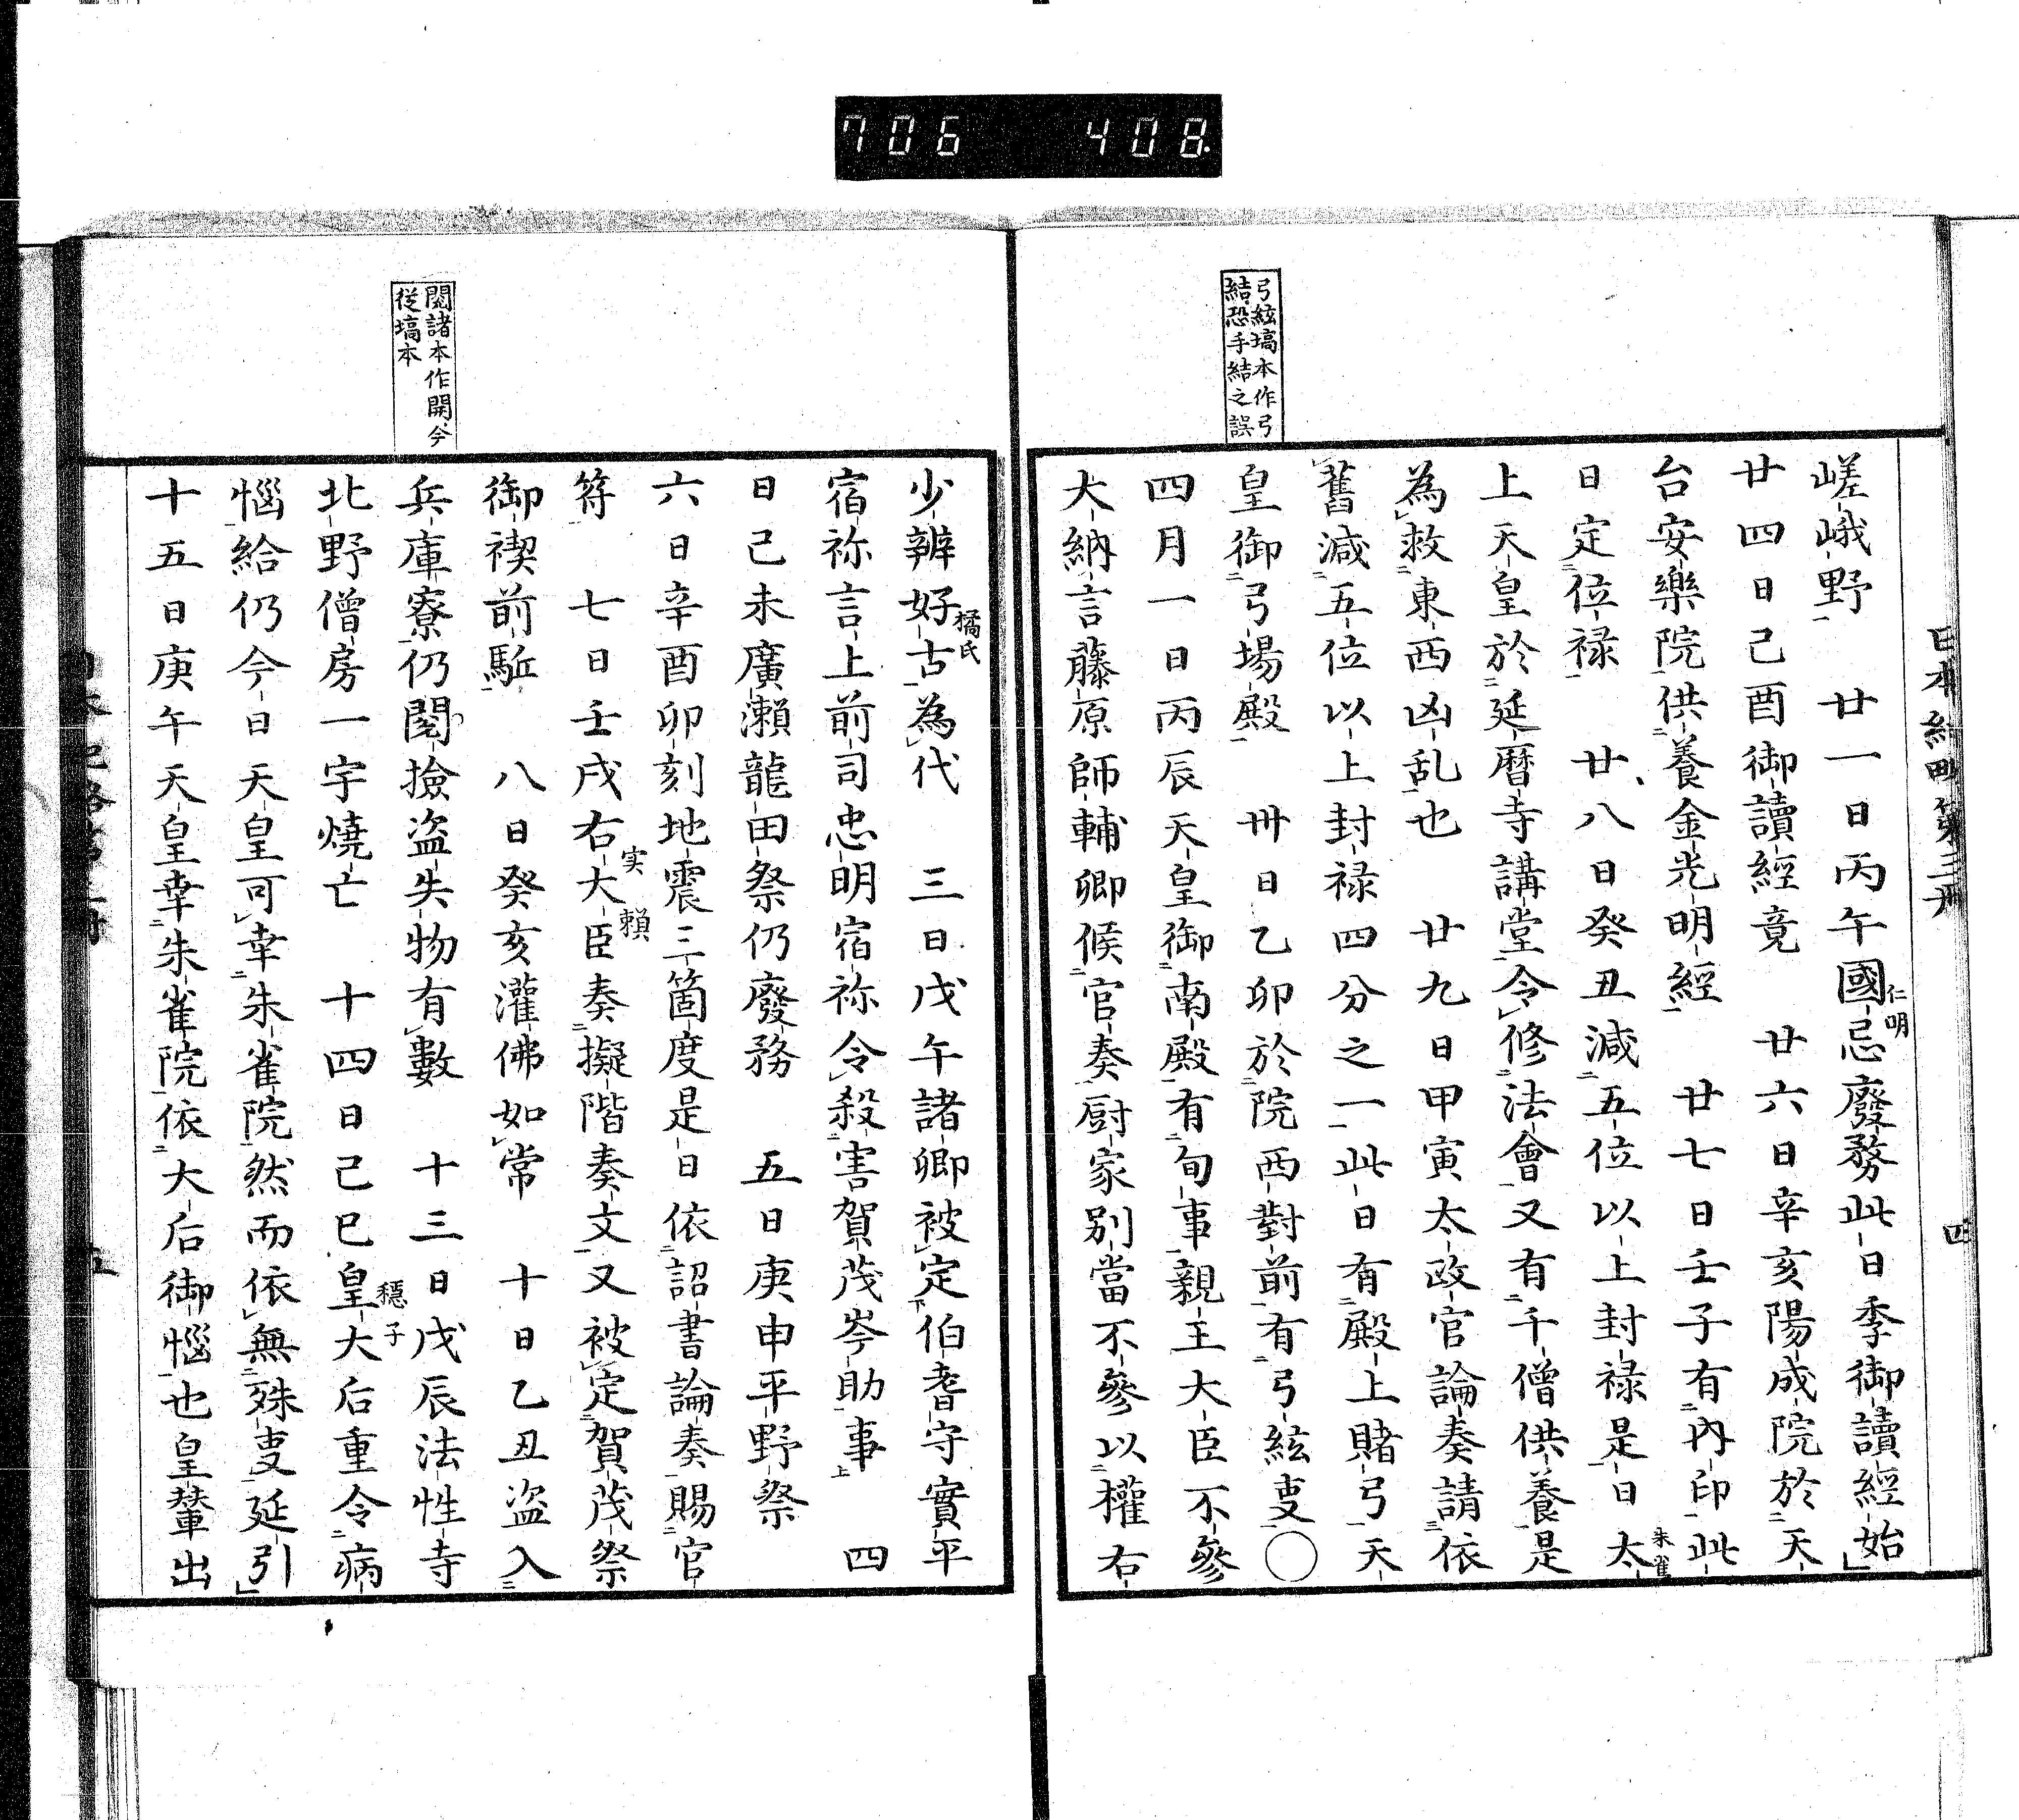 706 408.
弓絃塙本作弓
結恐手結之誤
嵯峨野 廿一日丙午國忌廢務此日季御讀經始
仁明
廿四日己酉御讀經竟 廿六日辛亥陽成院於天
台安樂院供養金光明經 廿七日壬子有內印此
日定位禄 廿八日癸丑減五位以上封禄是日太
朱雀
上天皇於延暦寺講堂令修法會又有千僧供養是
為救東西凶乱也 廿九日甲寅太政官論奏請依
舊減五位以上封禄四分之一此日有殿上賭弓天
皇御弓場殿 卅日乙卯於院西對前有弓絃叓○
四月一日丙辰天皇御南殿有旬事親王大臣不參
大納言藤原師輔卿候官奏厨家別當不參以權右
閲諸本作開今
従塙本
少辨好古為代 三日戊午諸卿被定伯耆守實平
橘氏
宿祢言上前司忠明宿祢令殺害賀茂岑助事 四
日己未廣瀨龍田祭仍廢務 五日庚申平野祭
六日辛酉卯刻地震三箇度是日依詔書論奏賜官
符 七日壬戌右大臣奏擬階奏文又被定賀茂祭
実賴
御禊前駈 八日癸亥灌佛如常 十日乙丑盗入
兵庫寮仍閲撿盗失物有數 十三日戊辰法性寺
北野僧房一宇燒亡 十四日己巳皇大后重令病
穩子
惱給仍今日天皇可幸朱雀院然而依無殊叓延引
十五日庚午天皇幸朱雀院依大后御惱也皇輦出